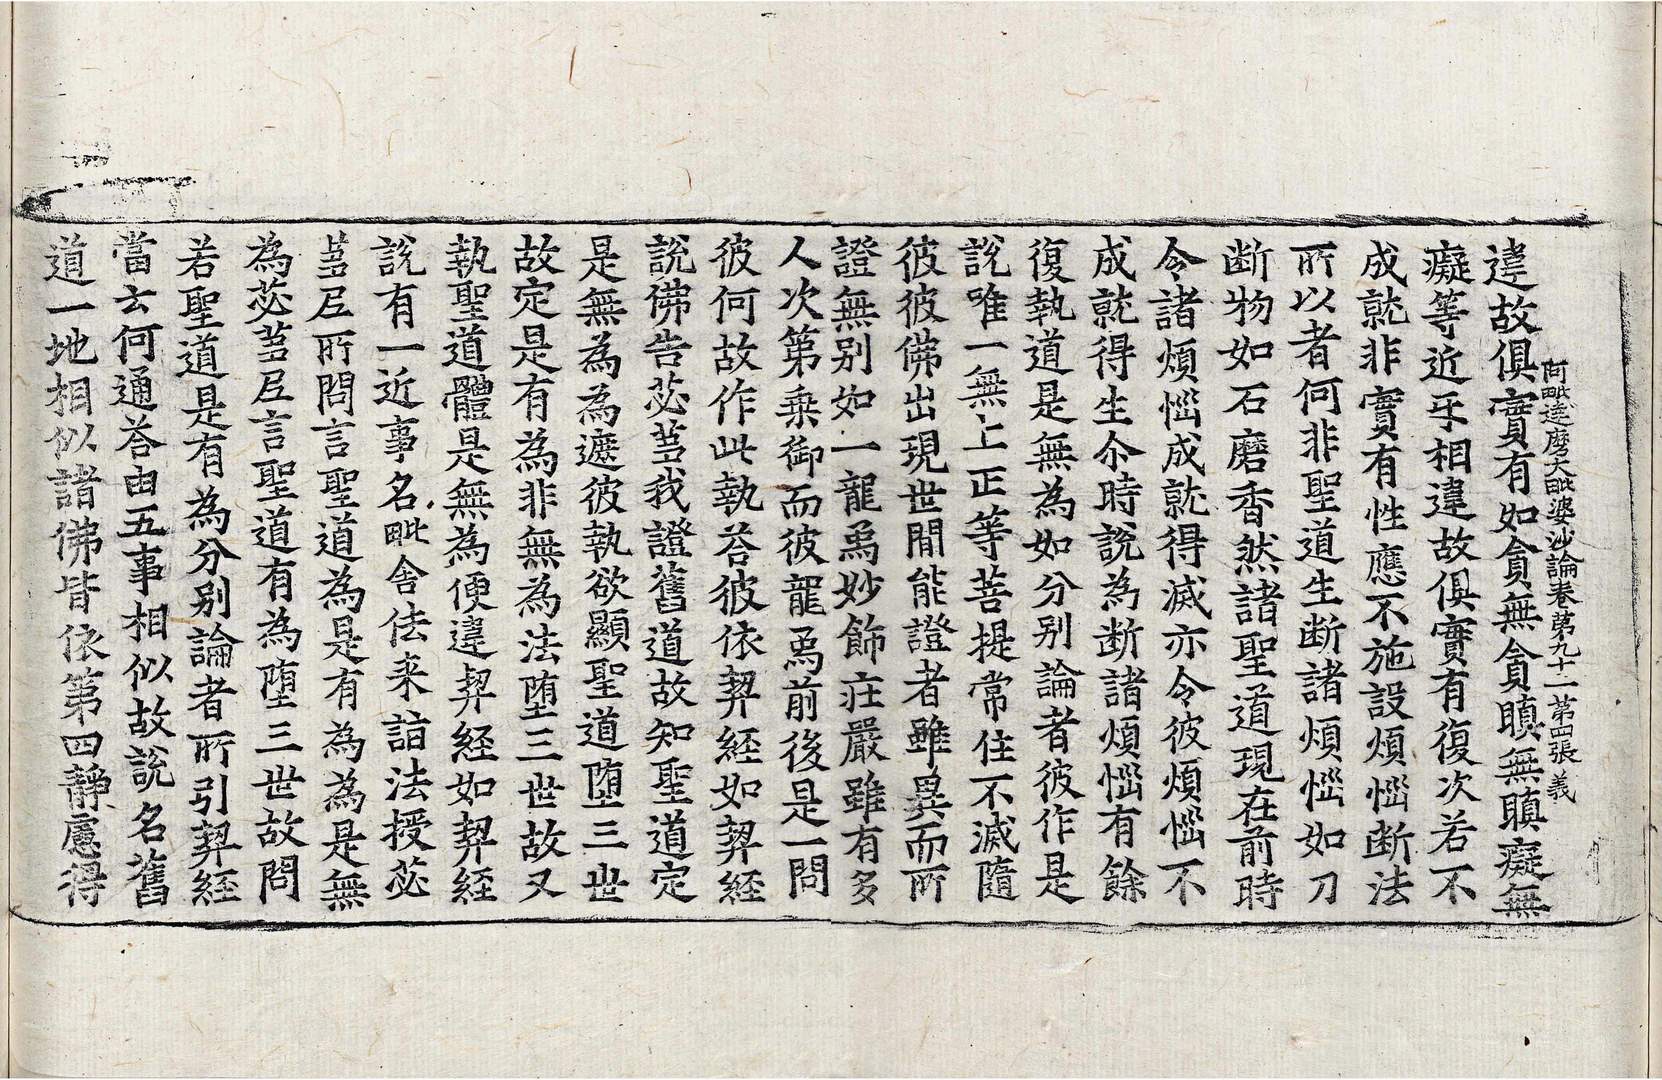 阿毗達磨大毗婆沙論卷第九十二 第四張 義
違故俱實有如貪無貪瞋無瞋癡無
癡等近乎相違故俱實有復次若不
成就非實有性應不施設煩惱断法
所以者何非聖道生断諸煩惱如刀
断物如石磨香然諸聖道現在前時
令諸煩惱成就得滅亦令彼煩惱不
成就得生尒時說為断諸煩惱有餘
復執道是無為如分别論者彼作是
說唯一無上正等菩提常住不滅隨
彼彼佛出現世間能證者雖異而所
證無别如一龍馬妙飾莊嚴雖有多
人次第乗御而彼龍馬前後是一問
彼何故作此執荅彼依契經如契經
說佛告苾蒭我證舊道故知聖道定
是無為為遮彼執欲顯聖道堕三世
故定是有為非無為法堕三世故又
執聖道體是無為便違契經如契經
說有一近事名毗舍佉来詣法授苾
蒭尼所問言聖道為是有為為是無
為苾蒭尼言聖道有為堕三世故問
若聖道是有為分别論者所引契經
當云何通荅由五事相似故說名舊
道一地相似諸佛皆依第四靜慮得